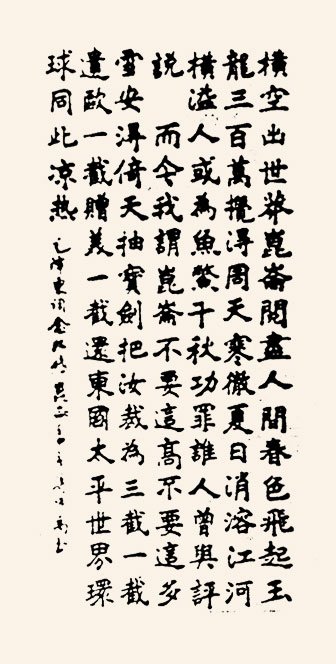 橫空出世莽崑崙閱盡人間春色飛起玉
龍三百萬攪浔周天寒徹夏日消溶江河
橫溢人或為魚鱉千秋功罪誰人曾與評
說　而今我謂崑崙不要這高不要這多
雪安浔倚天抽寶劍把汝裁為三截一截
遺歐一截贈美一截還東國太平世界環
球同此凉热
毛澤東詞念奴嬌昆